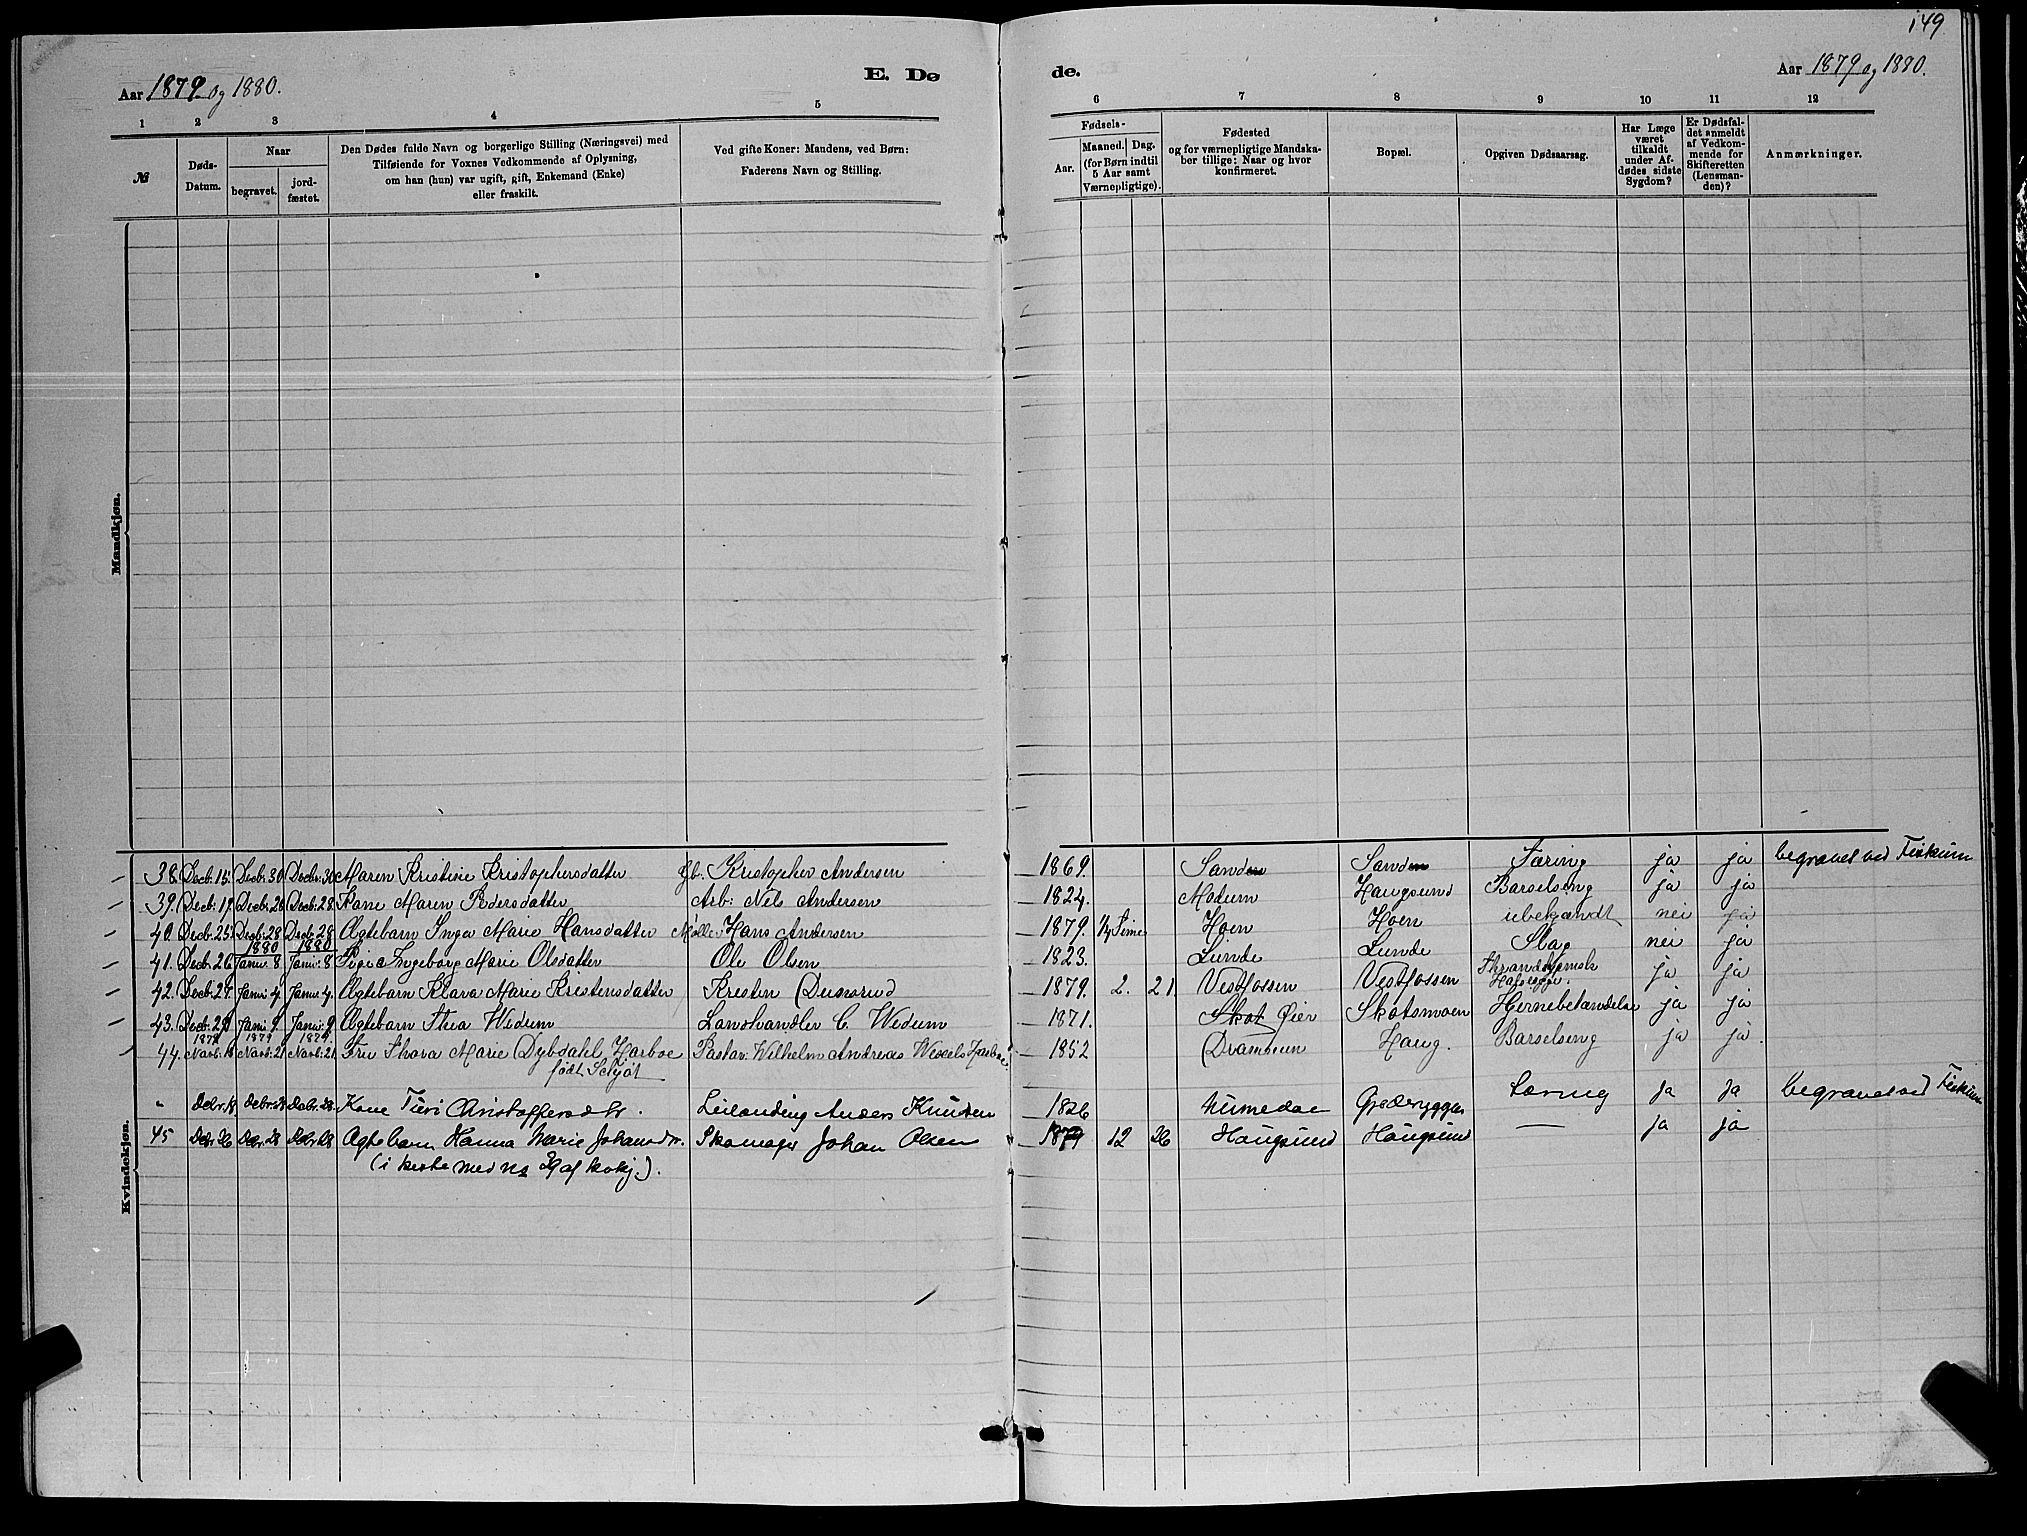 149
Aar 1879 og 1880.
E. Dø
de.
Aar 1879 og 1880.
1 2 3 4 5 6 7 8 9 10 11 12
№
Døds-Datum.
Naar
begravet.
jord-fæstet.
Den Dødes fulde Navn og borgerlige Stilling (Næringsvei) med
Tilføiende for Voxnes Vedkommende af Oplysning,
om han (hun) var ugift, gift, Enkemand (Enke)
eller fraskilt.
Ved gifte Koner: Mandens, ved Børn:
Faderens Navn og Stilling.
Fødsels-
Aar.
Maaned. Dag.
(for Børn indtil
5 Aar samt
Værnepligtige).
Fødested
og for værnepligtige Mandska-
ber tillige: Naar og hvor
konfirmeret.
Bopæl.
Opgiven Dødsaarsag.
Har Læge
været
tilkaldt
under Af-
dødes sidste
Sygdom?
Er Dødsfal-
det anmeldt
af Vedkom-
mende for
Skifteretten
(Lensman-
den)?
Anmærkninger.
Mandkjøn.
Kvindekjøn.
38. Decb. 15 Decb. 30 Decbr. 30 Maren Kristine Kristophersdatter Gb. Kristopher Andersen 1869. Sanden Sanden Tæring ja ja begravet ved Fiskum
39. Decb. 19 Decbr. 28 Decbr. 28 Kone Maren Pedersdatter Arb: Nels Andersen 1824. Modum Haugsund Barselseng ja ja
40. Decb. 25 Decb. 28 Decb. 28 Ægtebarn Inga Marie Hansdatter Møller Hans Andersen 1879. ½ Time Hoen Hoen ubekjendt nei ja
1880 1880
41. Decb. 26 Janu. 8 Janu. 8 Pige Ingeborg Marie Olsdatter Ole Olsen 1823. Lunde Lunde Slag nei ja
42. Decb. 27 Janu. 4 Janu. 4. Ægtebarn Klara Marie Kristensdatter Kristen Dusserud 1879. 2. 21. Vestfossen Vestfossen ja ja
43. Decb. 29 Janu. 9 Janu. 9 Ægtebarn Thea Wedum Landhandler C. Wedum 1871. Skot Øier Skotsmoen ja ja
1879 1879 1879.
44. Novb. 18 Novb. 21 Novb. 21 Fru Thora Marie Dybdahl Harboe Pastor: Wilhelm Andreas Wexels Harboe 1852 Drammen Haug. Barselseng ja ja.
født Schjøt
" Debr. 18 Debr. 28 Debr. 28. Kone Turi Christoffersdtr. Leilænding Anders Knudsen 1826 Numedal Tæring ja ja begravet ved Fiskum
45 Debr. 26 Debr. 28 Debr. 28 Ægtebarn Hanna Marie Johansdtr. Skomager Johan Olsen 1879 12 26 Haugsund Haugsund — ja ja
(i kiste med No 39 af kvkj.).